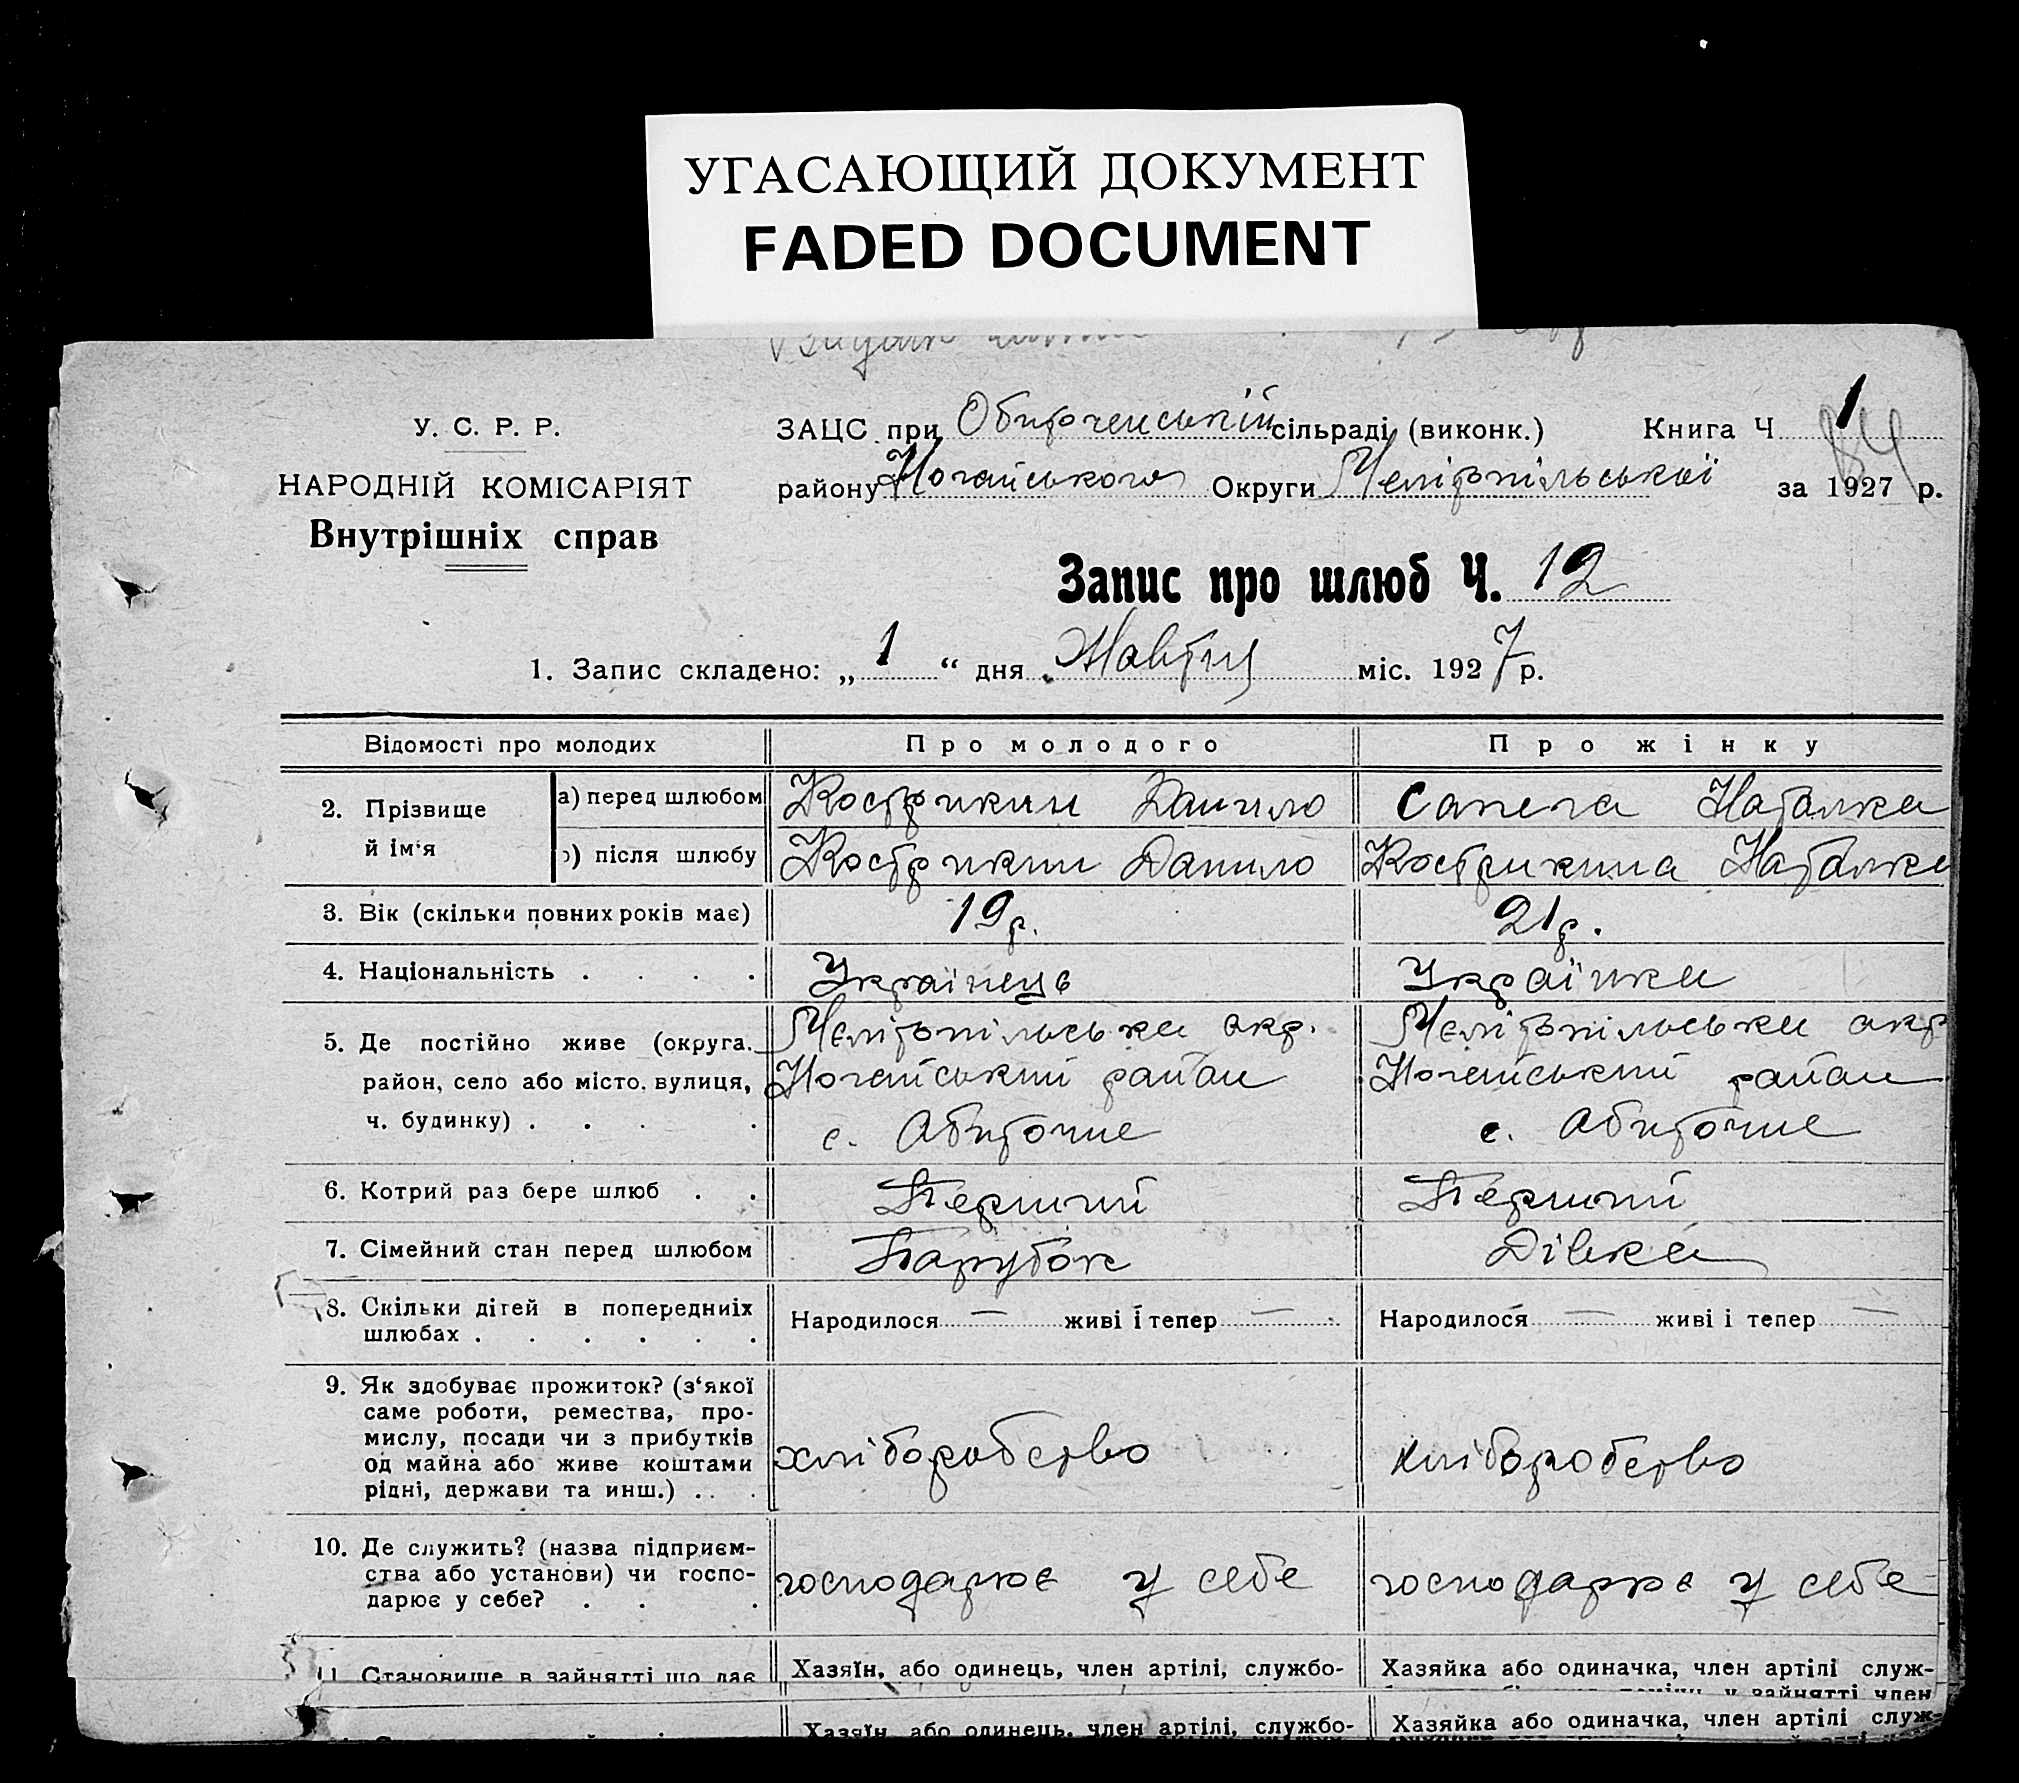 УГАСАЮЩИЙ ДОКУМЕНТ
FADED DOCUMENT
У. С. Р. Р.
НАРОДНІЙ КОМІСАРІЯТ
Внутрішніх справ
ЗАЦС при Обиточенській сільраді (виконк.) Книга Ч 1
84
району Ногайського Округи Мелітопільської за 1927 р.
Запис про шлюб Ч. 12
1. Запис складено: „ 1 “ дня Жовтня міс. 1927 р.
Відомості про молодих Про молодого Про жінку
2. Прізвище й ім‘я
а) перед шлюбом Кострикин Данило Сапега Наталка
б) після шлюбу Кострикин Данило Кострикина Наталка
3. Вік (скільки повних років має) 19 р. 21 р.
4. Національність . . . . Українець Українка
5. Де постійно живе (округа, Мелітопільська окр. Мелітопільська окр
район, село або місто, вулиця, Ногайський район Ногайський район
ч. будинку) . . . . с. Обиточне с. Обиточне
6. Котрий раз бере шлюб . . Перший Перший
7. Сімейний стан перед шлюбом Парубок Дівка
8. Скільки дітей в попередниіх Народилося — живі і тепер — Народилося — живі і тепер —
шлюбах . . . . . .
9. Як здобуває прожиток? (з‘якої
саме роботи, ремества, про-
мислу, посади чи з прибутків хліборобство хліборобство
од майна або живе коштами
рідні, держави та инш.) . . .
10. Де служить? (назва підприєм-
ства або установи) чи госпо- господарює у себе господарює у себе
дарює у себе? . . .
11. Становище в зайнятті що дає Хазяїн, або одинець, член артілі, службо- Хазяйка або одиначка, член артілі служ-
у зайнятті член
Хазяїн, або одинець, член артілі, службо- Хазяйка або одиначка, член артілі служ-